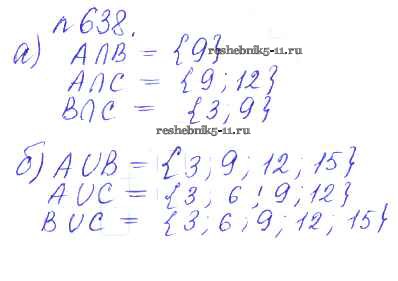 №638.
а) A∩B = {9}
reshebnik5-11.ru
A∩C = {9; 12}
B∩C = {3; 9}
reshebnik5-11.ru
б) A∪B = {3; 9; 12; 15}
A∪C = {3; 6; 9; 12}
B∪C = {3; 6; 9; 12; 15}